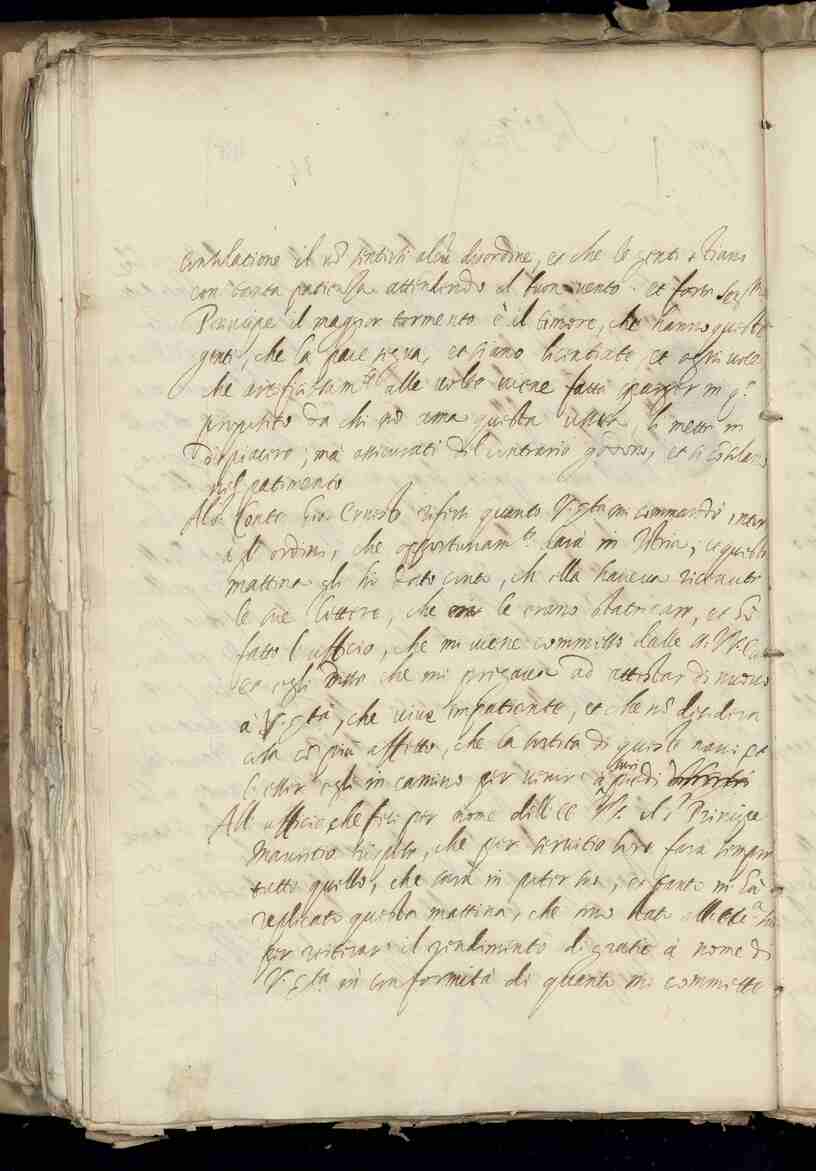 consolatione il nõ sentirsi alcũ disordine, et che le genti stiano
con tanta patienza attendendo il buon vento. et forsi Ser.mo
Principe il maggior tormento è il timore, che hanno queste
genti, che la pace segua, et siano licentiate, et ogni voce
che artificiosam.te alle volte viene fatta sparger in q.o
proposito da chi nõ ama questa, li mette in
dispiacere; mà assicurati del contrario godono, et si cõsolano
nel patimento
Al Conte Gio: Ernesto riferì quanto V. S.tà mi commandò, 
 gl'ordini, che opportunam.te sarà in Istria; et questa
mattina gli hò dato conto, ch'ella haveva ricevute
le sue lettere, che le erano state care, et hò
fatto l'ufficio, che mi viene commesso dalle
et egli disse che mi pregava ad attestar di nuovo
à V. S.tà, che vive impatiente, et che nõ desidera
cosa cõ più affetto, che la partita di queste navi p
l'esser egli in camino per venire à suoi piedi
All'ufficio che feci per nome dell'EE. VV. il S.r Principe
Mauritio rispose, che per servitio loro farà sempre
tutto quello, che sarà in poter suo, et tanto mi hà
replicato questa mattina, che sono stato
per reiterar il rendimento di gratie à nome di
V. S.tà in conformità di quanto mi commette